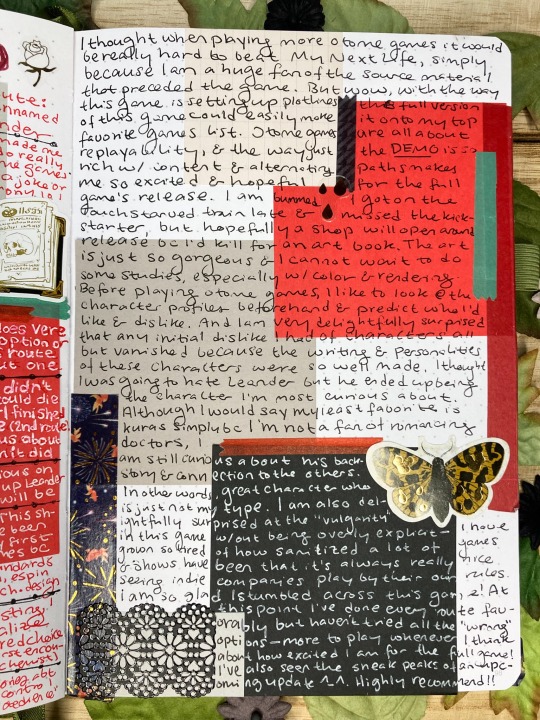 I thought when playing more otome games it would
be really hard to beat My Next Life, simply
because I am a huge fan of the source material
that preceded the game. But wow, with the way
this game is setting up plotlines the full version
of this game could easily make it onto my top
favorite games list. Otome games are all about
replayability, & the way just the DEMO is so
rich w/ content & alternating paths makes
me so excited & hopeful for the full
game's release. I am bummed I got on the
Touchstarved train late & missed the kick-
starter, but hopefully a shop will open around
release bc I'd kill for an art book. The art
is just so gorgeous & I cannot want to do
some studies, especially w/ color & rendering.
Before playing otome games, I like to look @ the
character profiles beforehand & predict who I'd
like & dislike. And I am very, delightfully surprised
that any initial dislike I had of characters all
but vanished because the writing & personalities
of these characters were so well made. I thought
I was going to hate Leander but he ended up being
the character I'm most curious about.
Although I would say my least favorite is
kuras simply bc I'm not a fan of romancing
doctors, I
am still curious about his back-
story & connection to the others.
In other words, great character who
is just not my type. I am also del-
ightfully surprised at the "vulgarity"
in this game w/out being overly explicit—
grown so tired of how sanitized a lot of
shows have been that it's always really
seeing indie companies play by their own
I am so glad I stumbled across this
this point I've done every route
ply but haven't tried all the "wrong"
options—more to play whenever I think
about how excited I am for the full game!
I've also seen the sneak peeks of an upc-
oming update ^-^. Highly recommend!!
I have
games
nice
rules.
At
fav-
ute:
nnamed
nder
made me
really
games
a joke or
only 10!
does very
option or
s route
but one.
didn't
could die
I finished
(2nd route
us about
n't did
ious on
up Leander
will be
This sh-
e been
y first
hes bc
ndards
espin
ch. design
alize
red choice
rst encou-
control &
obedience!